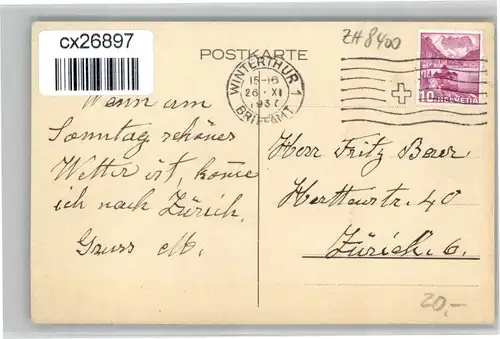 cx26897
ZH 8400
POSTKARTE
WINTERTHUR 1
15-16
26·XI
1937
BRIEFAMT
10 HELVETIA
Wenn am
Sonntag schönes
Wetter ist, kome
ich nach Zürich.
Gruss M.
Herr Fritz Baer
40
Zürich 6.
20.-